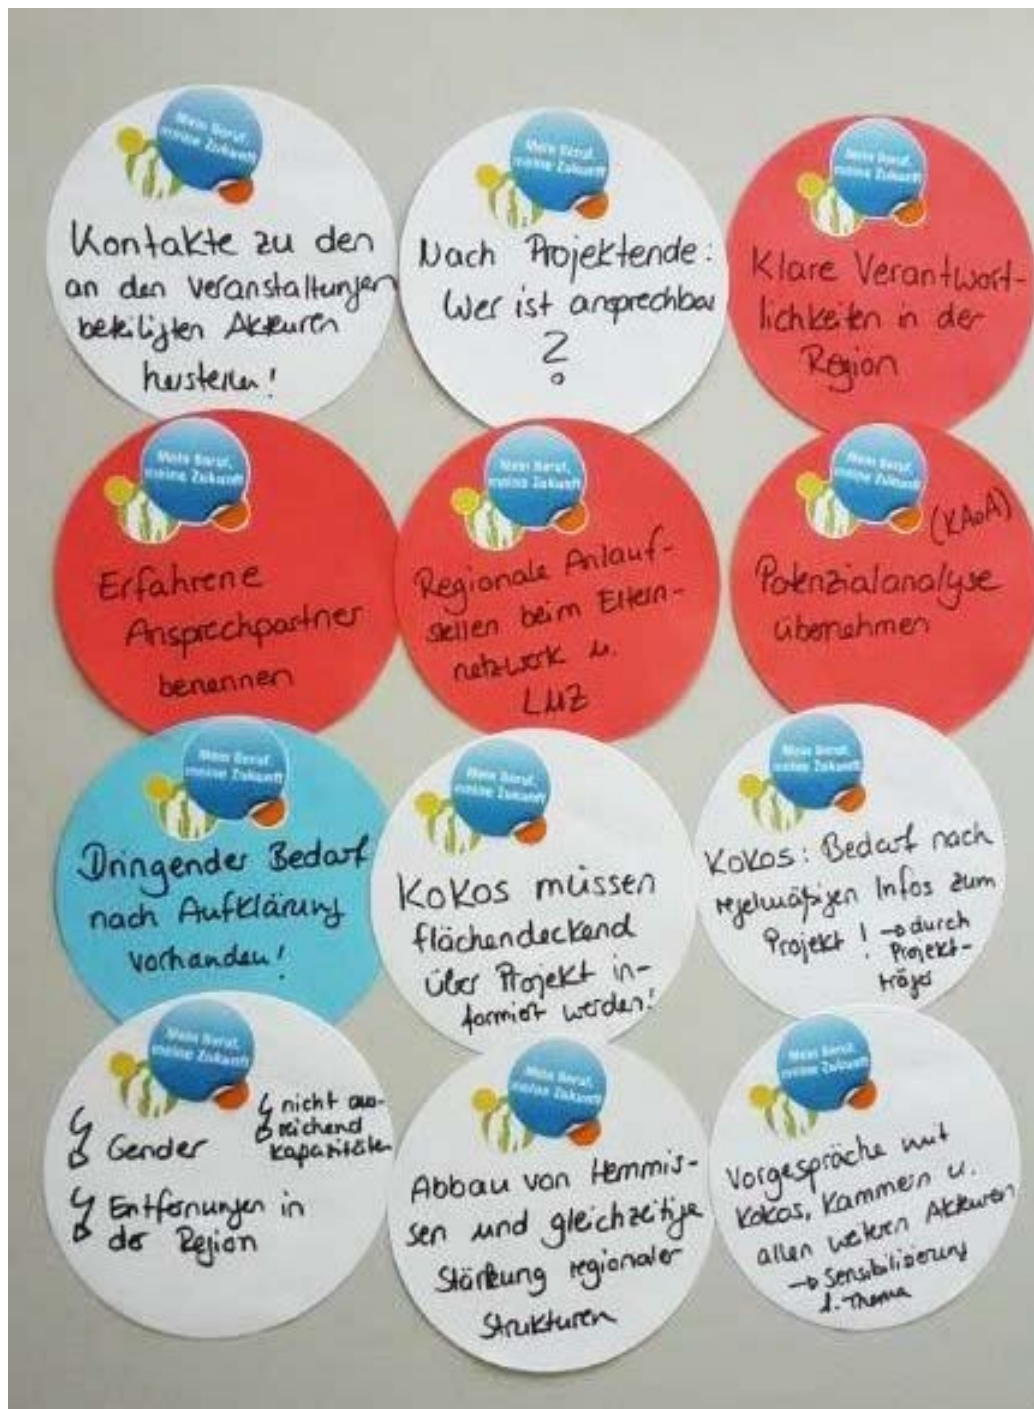 Mein Beruf,
meine Zukunft
Kontakte zu den
an den Veranstaltungen
beteiligten Akteuren
herstellen!
Mein Beruf,
meine Zukunft
Nach Projektende:
Wer ist ansprechbar
?
Mein Beruf,
meine Zukunft
Klare Verantwort-
lichkeiten in der
Region
Mein Beruf,
meine Zukunft
Erfahrene
Ansprechpartner
benennen
Mein Beruf,
meine Zukunft
Regionale Anlauf-
stellen beim Eltern-
netzwerk u.
LMZ
Mein Beruf,
meine Zukunft
(KAoA)
Potenzialanalyse
übernehmen
Mein Beruf,
meine Zukunft
Dringender Bedarf
nach Aufklärung
vorhanden!
Mein Beruf,
meine Zukunft
KoKos müssen
flächendeckend
über Projekt in-
formiert werden!
Mein Beruf,
meine Zukunft
KoKos: Bedarf nach
regelmäßigen Infos zum
Projekt! → durch
Projekt-
träger
Mein Beruf,
meine Zukunft
Gender
nicht aus-
reichend
Kapazitäten
Entfernungen in
der Region
Mein Beruf,
meine Zukunft
Abbau von Hemmis-
sen und gleichzeitige
Stärkung regionaler
Strukturen
Mein Beruf,
meine Zukunft
Vorgespräche mit
Kokos, Kammern u.
allen weitern Akteuren
→ Sensibilisierung
f. Thema